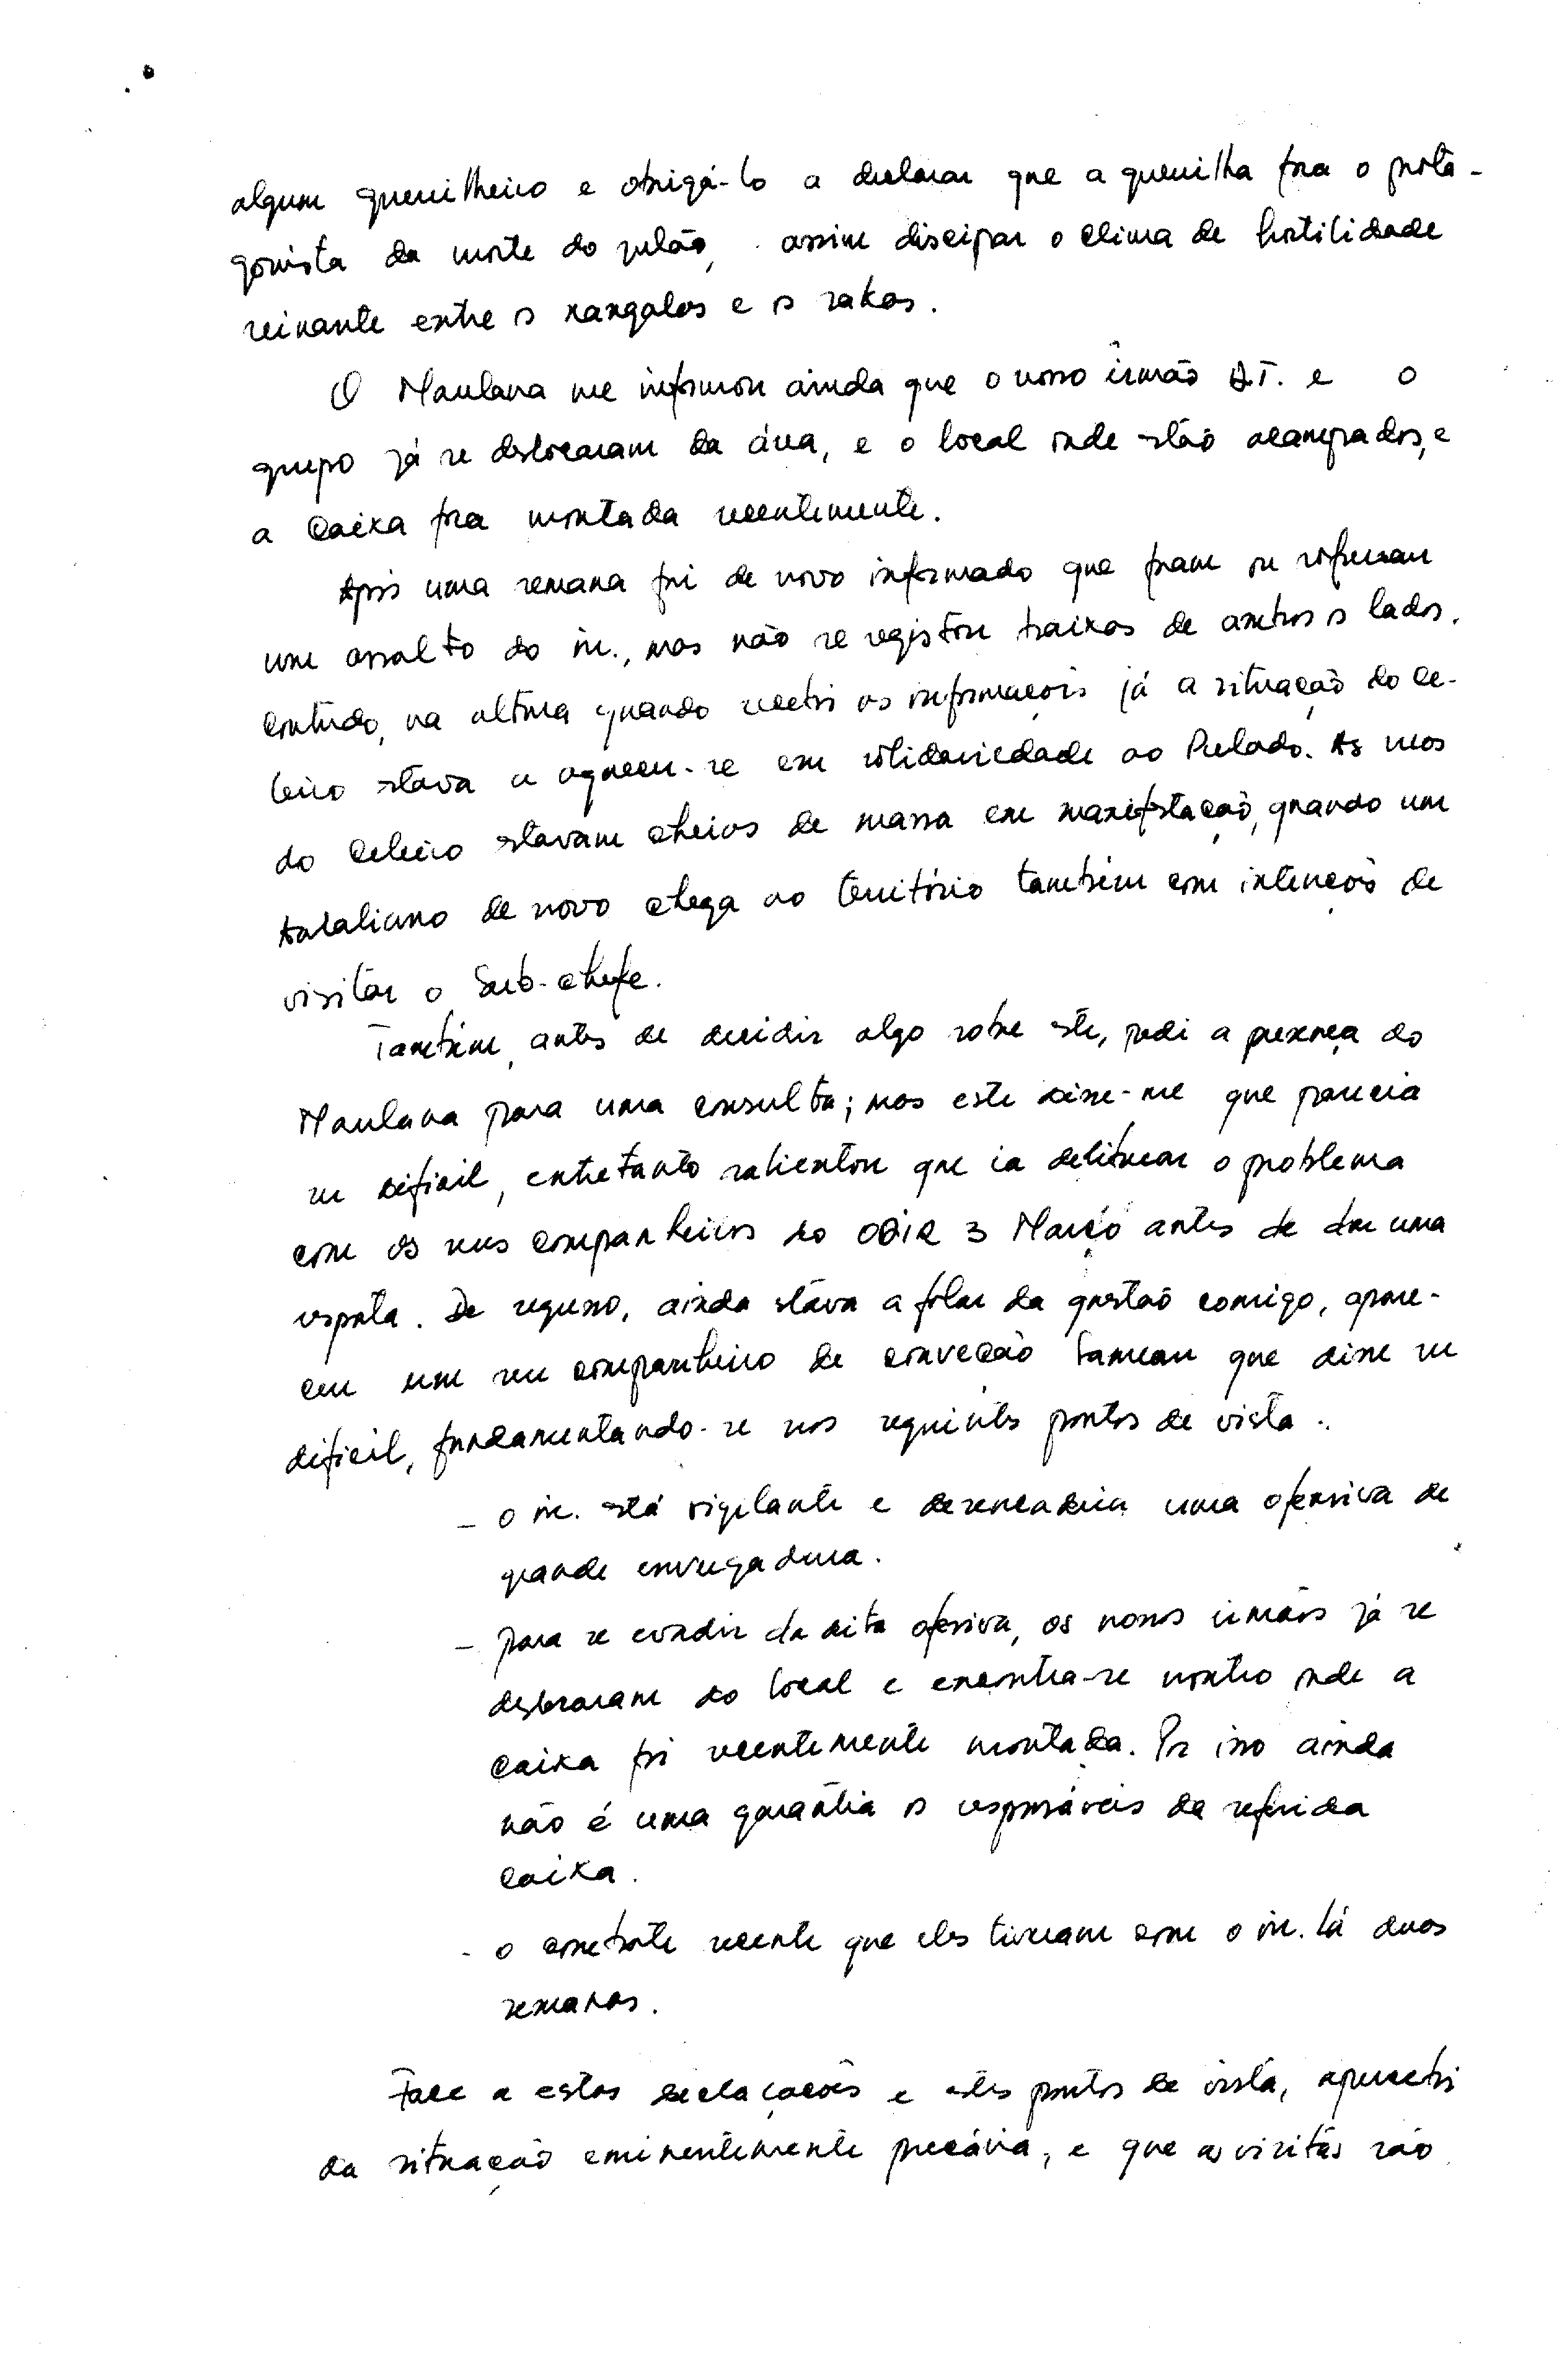 algum guerrilheiro e obrigá-lo a declarar que a guerrilha fora o prota-
gonista da morte do zulão, assim discipar o clima de hostilidade
reinante entre os xangalos e os rakas.
O Maulana me informou ainda que o nosso irmão A.T. e o
grupo já se deslocaram da área, e o local onde estão acampados, e
a caixa fora montada recentemente.
Após uma semana fui de novo informado que foram ou sofreram
um assalto do in., mas não se registou baixas de ambos os lados.
Contudo, na ultima quando recebi as informações já a situação do ce-
leiro estava a aquecer-se em solidariedade ao Prelado. As ruas
do Celeiro estavam cheias de massa em manifestação, quando um
Australiano de novo chega ao território também com intenções de
visitar o Sub-chefe.
Também, antes de decidir algo sobre este, pedi a presença do
Maulana para uma consulta; mas este disse-me que parecia
ser dificil, entretanto salientou que ia delinear o problema
com os seus companheiros do ODIR 3 Março antes de dar uma
resposta. De regresso, ainda estava a falar da questão comigo, apare-
ceu um seu companheiro de convecção Samear que disse ser
dificil, fundamentando-se nos seguintes pontos de vista:
- o in. está vigilante e desencadeia uma ofensiva de
grande envergadura.
- para se evadir da dita ofensiva, os nossos irmãos já se
deslocaram do local e encontra-se noutro onde a
caixa foi recentemente montada. Por isso ainda
não é uma garantia os responsáveis da referida
caixa.
- o combate recente que eles tiveram com o in. há duas
semanas.
Face a estas declarações e estes pontos de vista, apercebi
da situação eminentemente precária, e que as visitas são